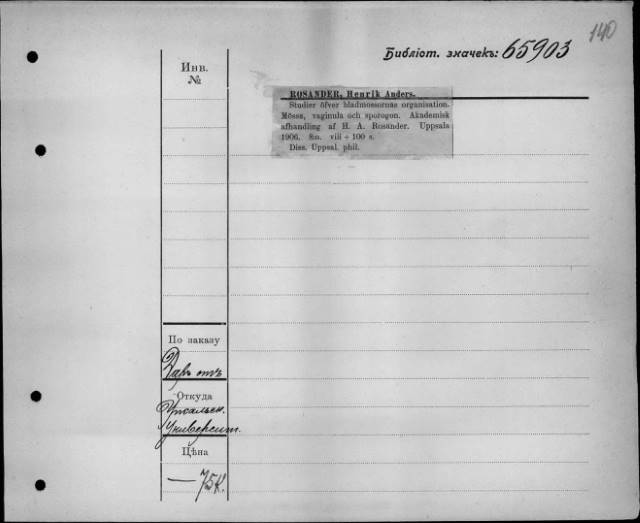 140
Библіот. значекъ: 65903
Инв.
№
ROSANDER, Henrik Anders.
Studier öfver bladmossornas organisation.
Mössa, vaginula och sporogon. Akademisk
afhandling af H. A. Rosander. Uppsala
1906. 8:o. viii + 100 s.
Diss. Uppsal. phil.
По заказу
Даръ отъ
Откуда
Упсальск.
Университ.
Цѣна
— 75 к.